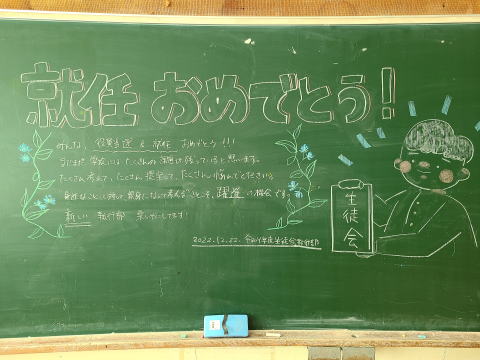 就任 おめでとう!
みんな、役員当選 & 就任 おめでとう!!!
まだまだ 学校には たくさんの 課題が 残っていると 思います。
たくさん 考えて、たくさん 提案して、たくさん 悩んでください。
身近なことに対して 親身になって考えることこそ、躍進の機会です。
新しい 執行部 楽しみにしてます!
2022.12.22. 令和4年度生徒会執行部
生徒会